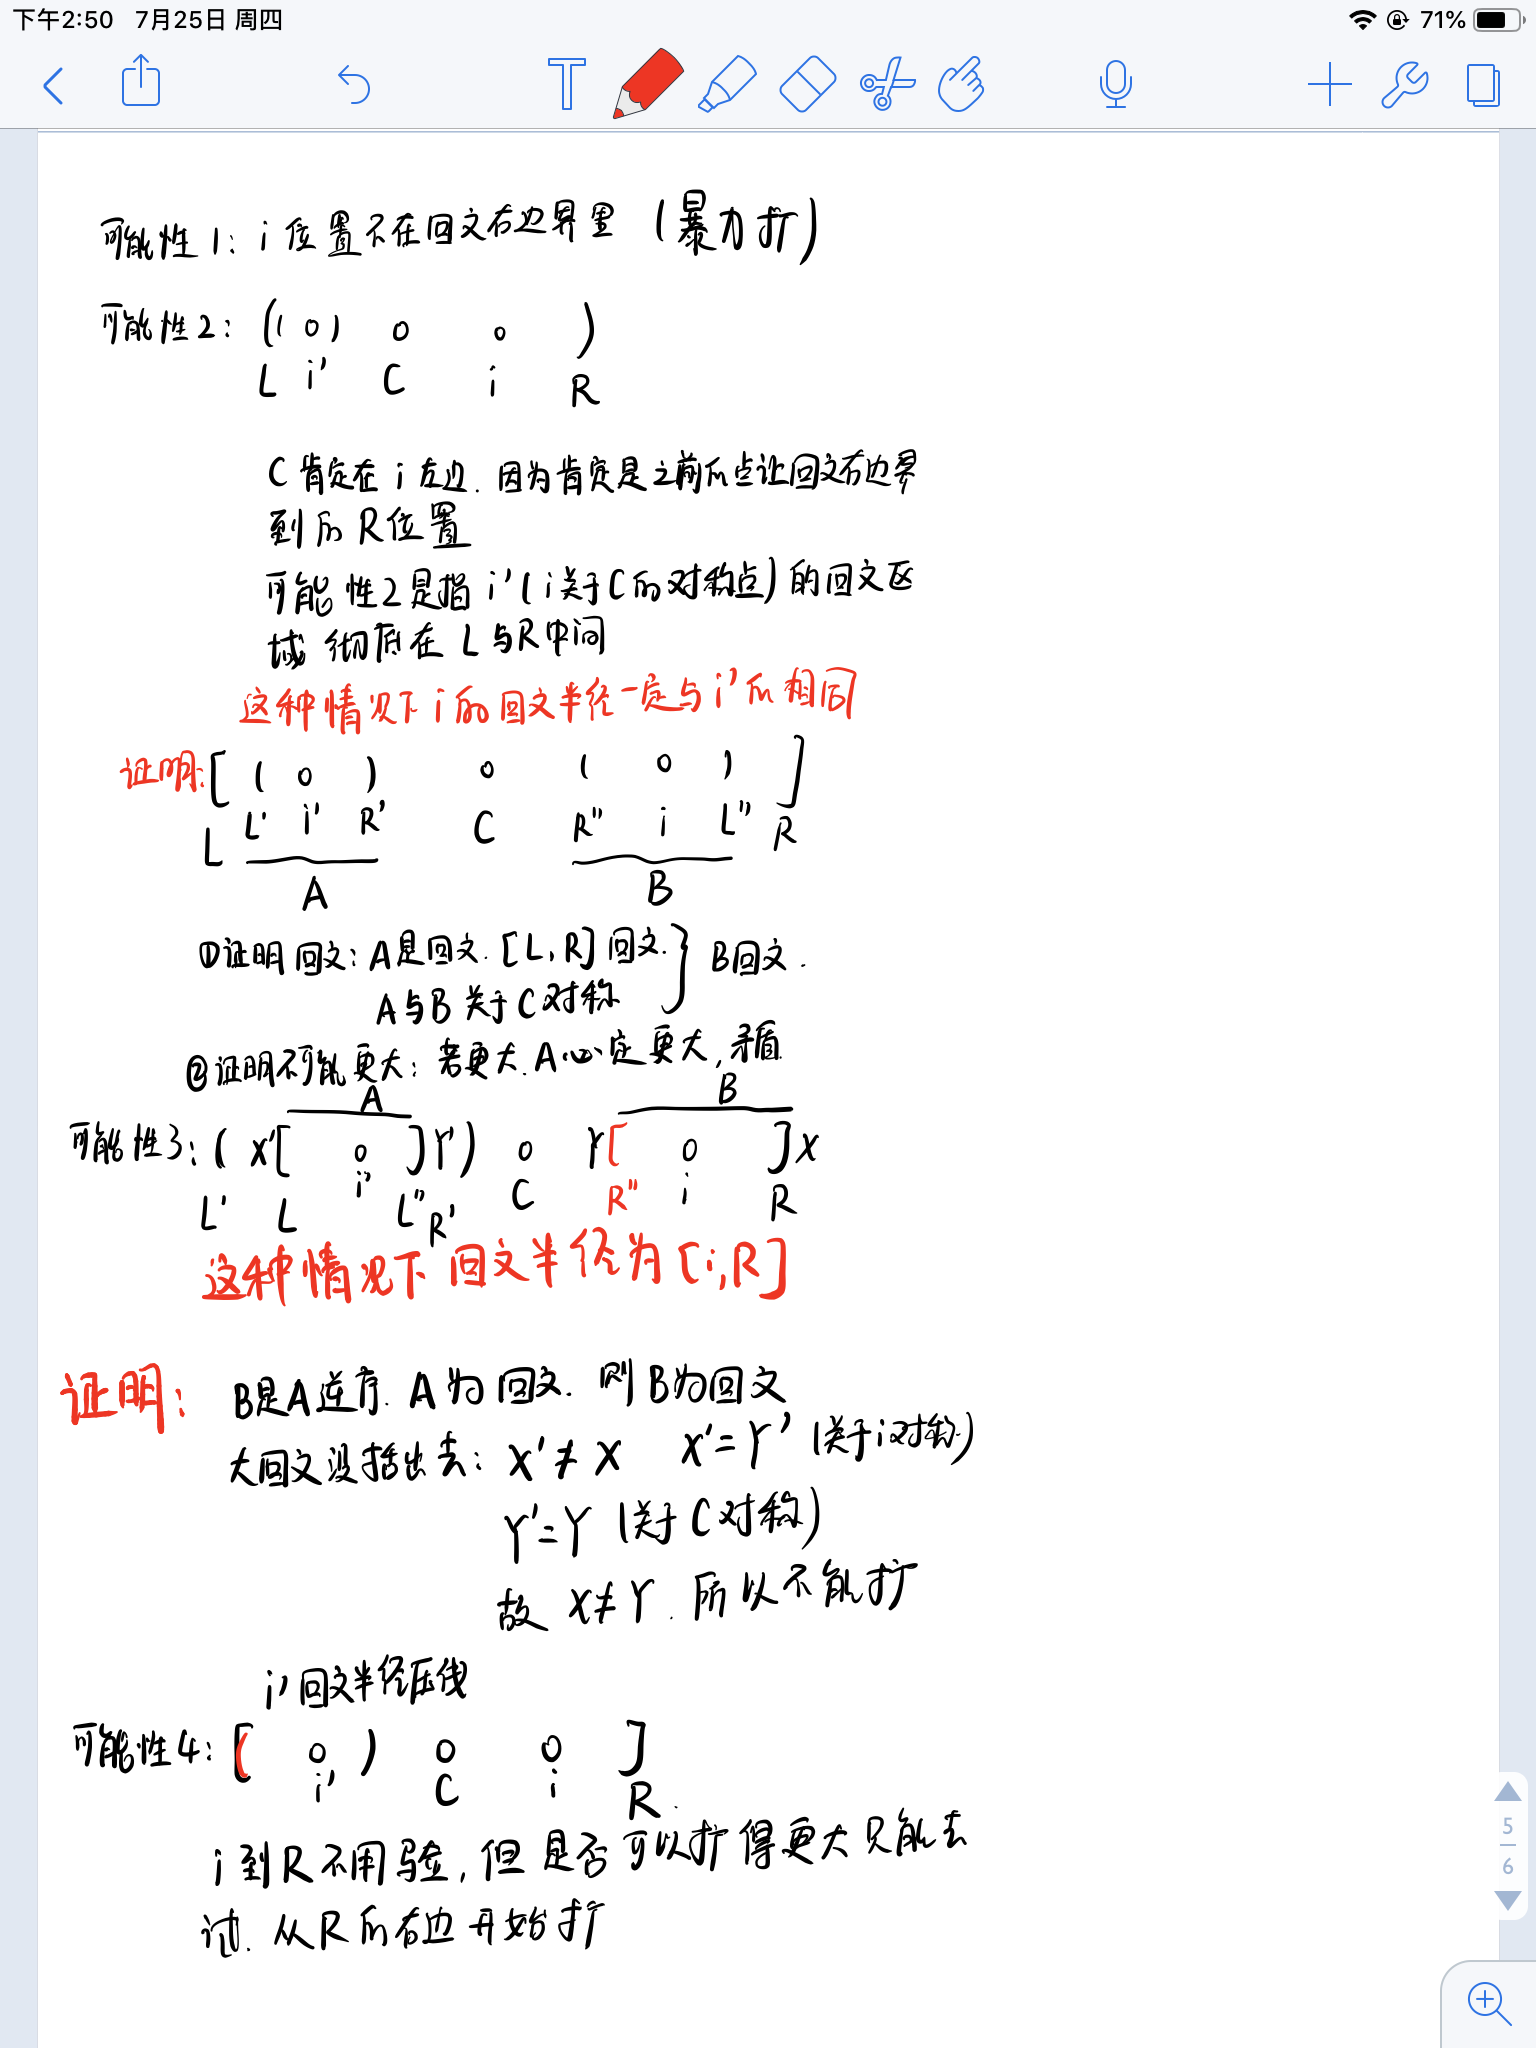 下午2:50 7月25日 周四
71%
可能性1: i位置不在回文右边界里 (暴力扩)
可能性2: ( ( o ) o o )
L i' C i R
C肯定在i左边. 因为肯定是之前的点让回文右边界
到的R位置
可能性2是指 i'(i关于C的对称点)的回文区
域彻底在L与R中间
这种情况下i的回文半径一定与i'的相同
证明: [ ( o ) o ( o ) ]
L L' i' R' C R'' i L'' R
A B
①证明回文: A是回文. [L,R]回文. } B回文.
A与B关于C对称
②证明不可能更大: 若更大. A必定更大, 矛盾.
A B
可能性3: ( X' [ o ] Y' ) o Y [ o ] X
L' L i' L'' R' C R'' i R
这种情况下回文半径为[i,R]
证明: B是A逆序. A为回文. 则B为回文
大回文没括出去: X'≠X X'=Y' (关于i对称)
Y'=Y (关于C对称)
故 X≠Y. 所以不能扩
i'回文半径压线
可能性4: [ ( o ) o o ]
i' C i R.
i到R不用验, 但是否可以扩得更大只能去
试. 从R的右边开始扩
5
6